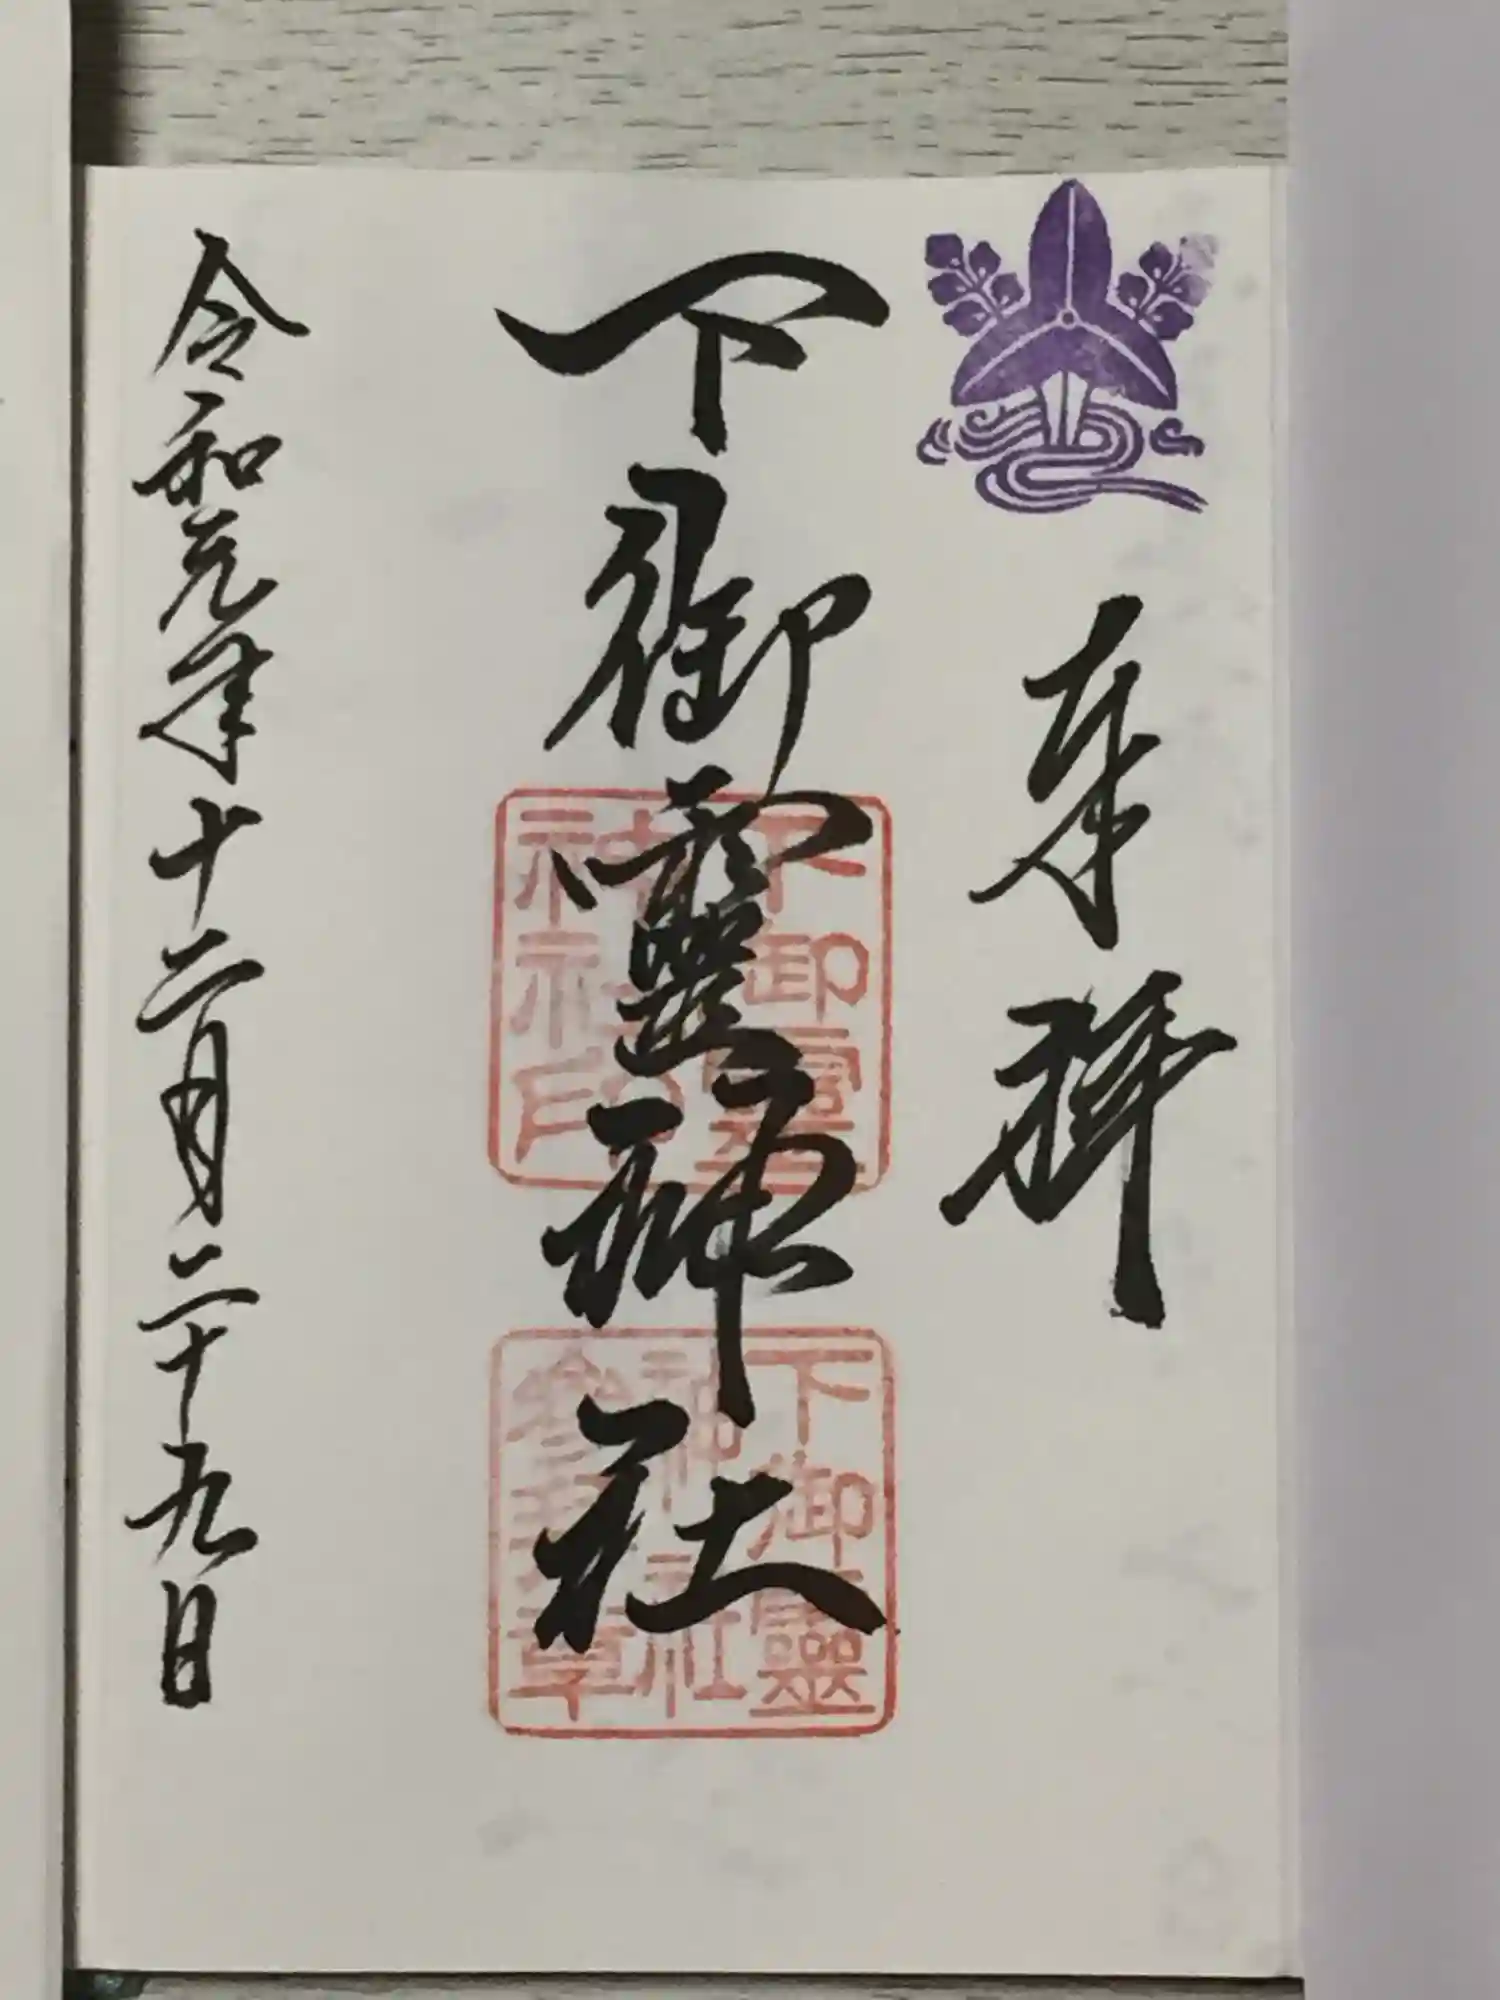 奉拝
下御霊神社
下御霊
神社印
下御靈
神社
参拝章
令和元年十二月二十九日